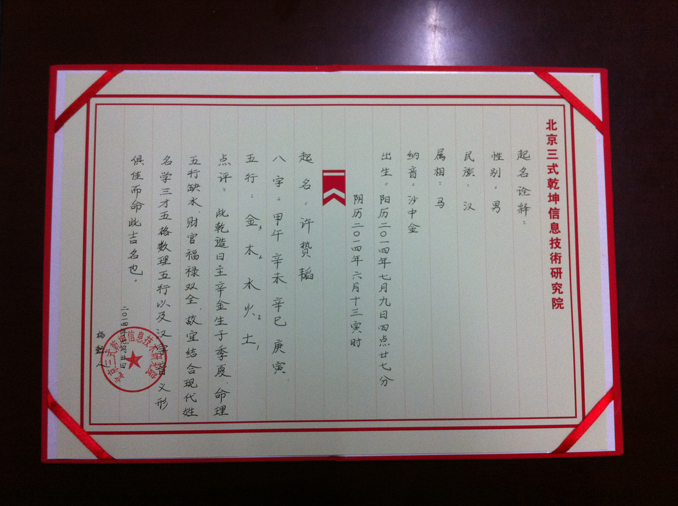 北京三式乾坤信息技術研究院
起名诠释：
性别：男
民族：汉
属相：马
纳音：沙中金
出生：阳历二〇一四年七月九日四点廿七分
阴历二〇一四年六月十三寅时
起名：许贽韬
八字：甲午 辛未 辛巳 庚寅
五行：金3 木2 水 火2 土1
点评：此乾造日主辛金生于季夏，命理
五行缺水，财官福禄双全，故宜结合现代姓
名学三才五格数理五行以及汉字音义形
俱佳而命此吉名也。